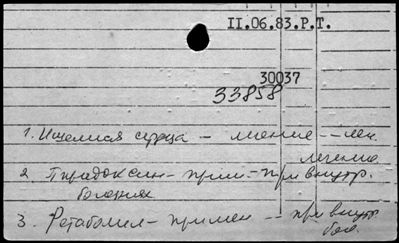 II.06.83.Р.Т.
30037
33858
1. Ишемия сердца - лечение -- лек.
лечение
2. Пиридоксин - прим. - при внутр.
болезнях
3. Ретаболил - примен -- при внутр
бол.